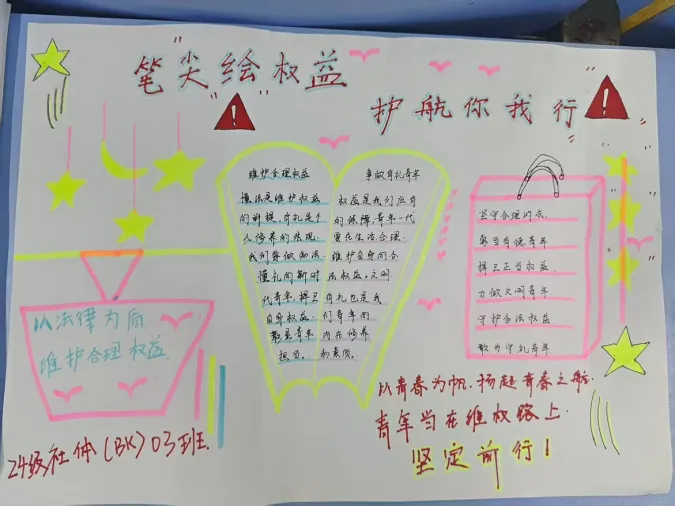 "笔尖"绘"权益"
护航你我行
维护合理权益
懂法是维护权益
的前提,有礼是个
人修养的体现。
我们要做知法、
懂礼的新时
代青年,捍卫
自身权益,
彰显青年
担当。
争做有礼青年
权益是我们应有
的保障,青年一代
要在生活合理
维护自身的合
法权益。文明
有礼也是我
们青年的
内在修养
和素质。
坚守合理诉求
争当有使青年
捍卫正当权益
力做文明青年
守护合法权益
敢为守礼青年
以法律为盾
维护合理权益
24级社体(BK)03班
以青春为帆,扬起青春之航.
青年当在维权路上
坚定前行!